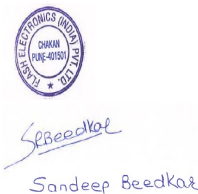 FLASH ELECTRONICS (INDIA) PVT. LTD.
CHAKAN
PUNE-401501
SPBeedkar
Sandeep Beedkar